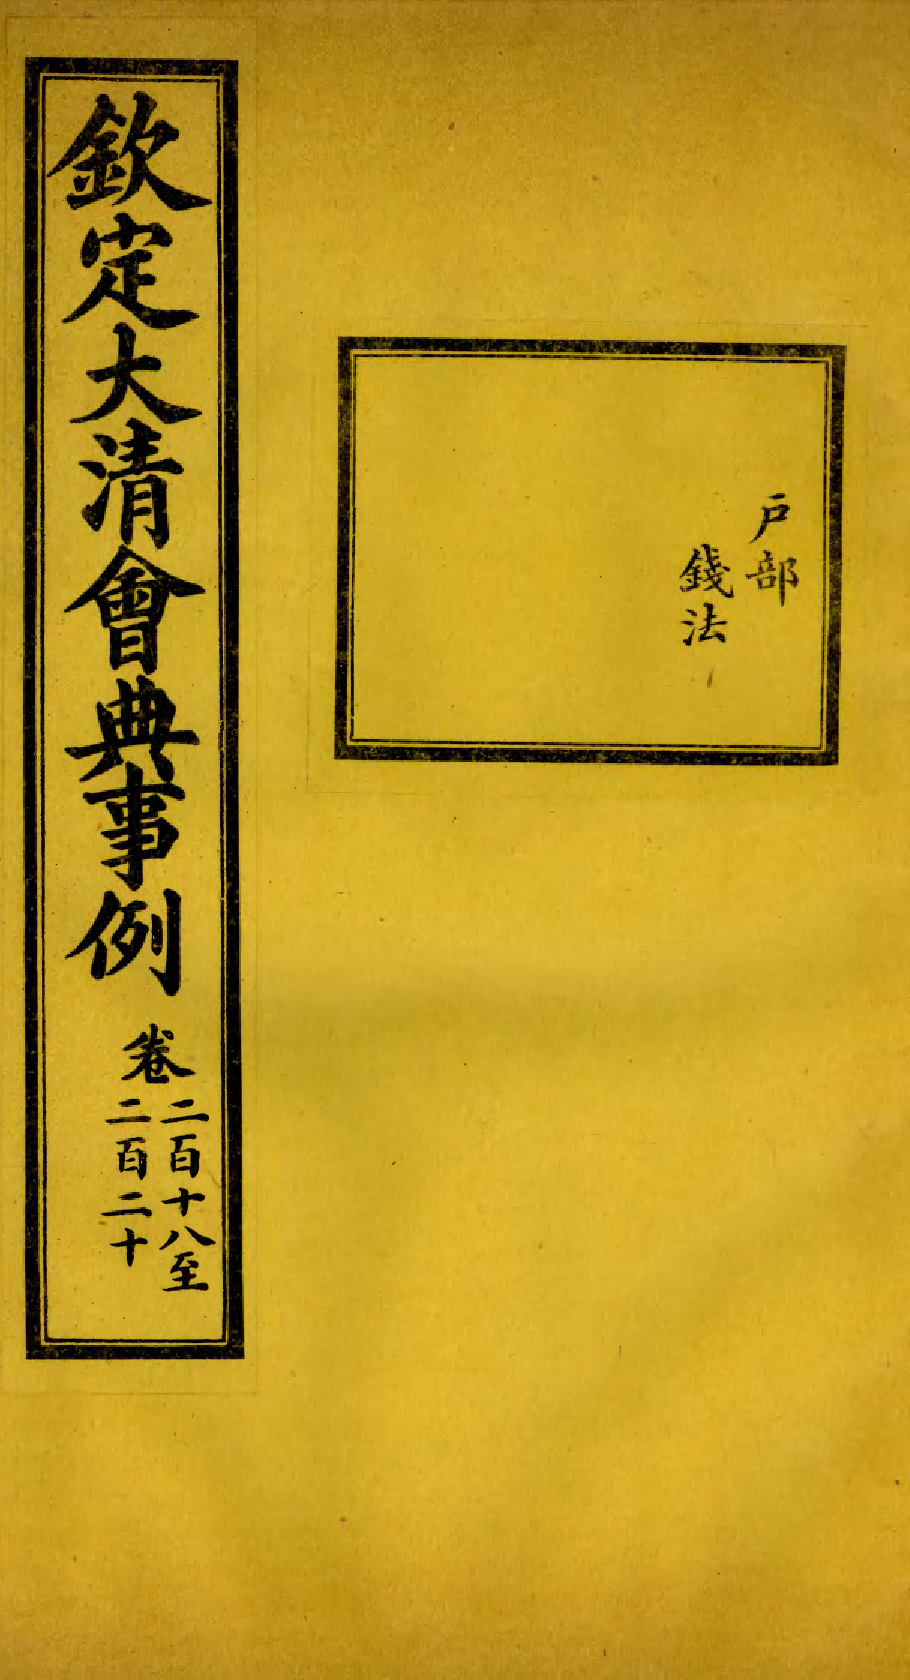 戶部
錢法
欽定大清會典事例
卷
二百十八至
二百二十